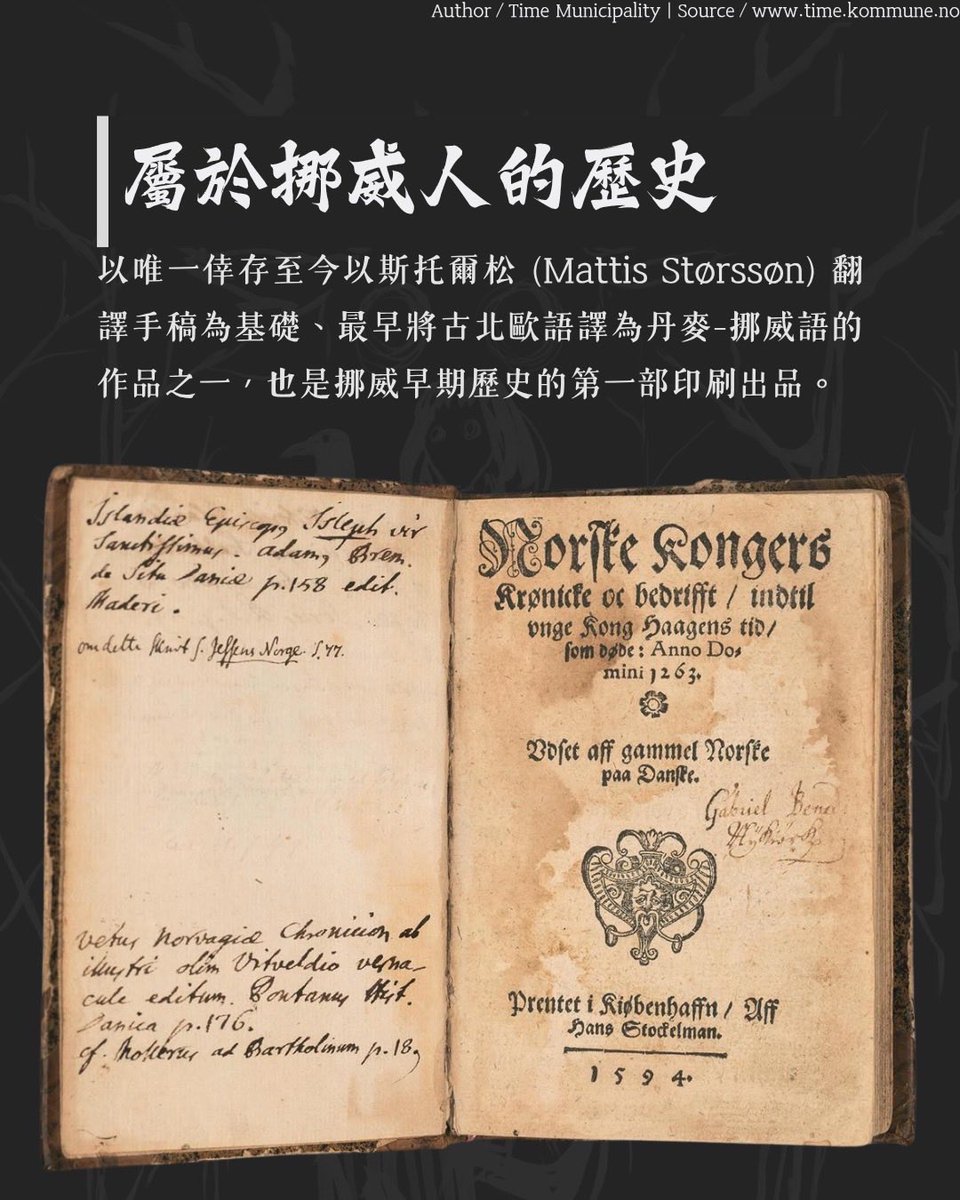 Author / Time Municipality | Source / www.time.kommune.no
屬於挪威人的歷史
以唯一倖存至今以斯托爾松 (Mattis Størssøn) 翻
譯手稿為基礎、最早將古北歐語譯為丹麥-挪威語的
作品之一，也是挪威早期歷史的第一部印刷出品。
Islandiæ Episcop, Isleph vir
Sanctissimus. adam, Brem.
de Situ Daniæ p.158 edit.
Maderi.
om dette Skrivt s. Jessens Norge. S.77.
vetus Norvagiæ Chronicion ab
illustri olim Vitveldio verna-
cule editum. Pontanus Hist.
Danica p.176.
cf. Mollerus ad Bartholinum p.18,
Norske Kongers
Krønicke oc bedrifft / indtil
vnge Kong Haagens tid /
som døde: Anno Do-
mini 1263.
Vdset aff gammel Norske
paa Danske.
Gabriel
Prentet i Kiøbenhaffn / Aff
Hans Stockelman.
1594.